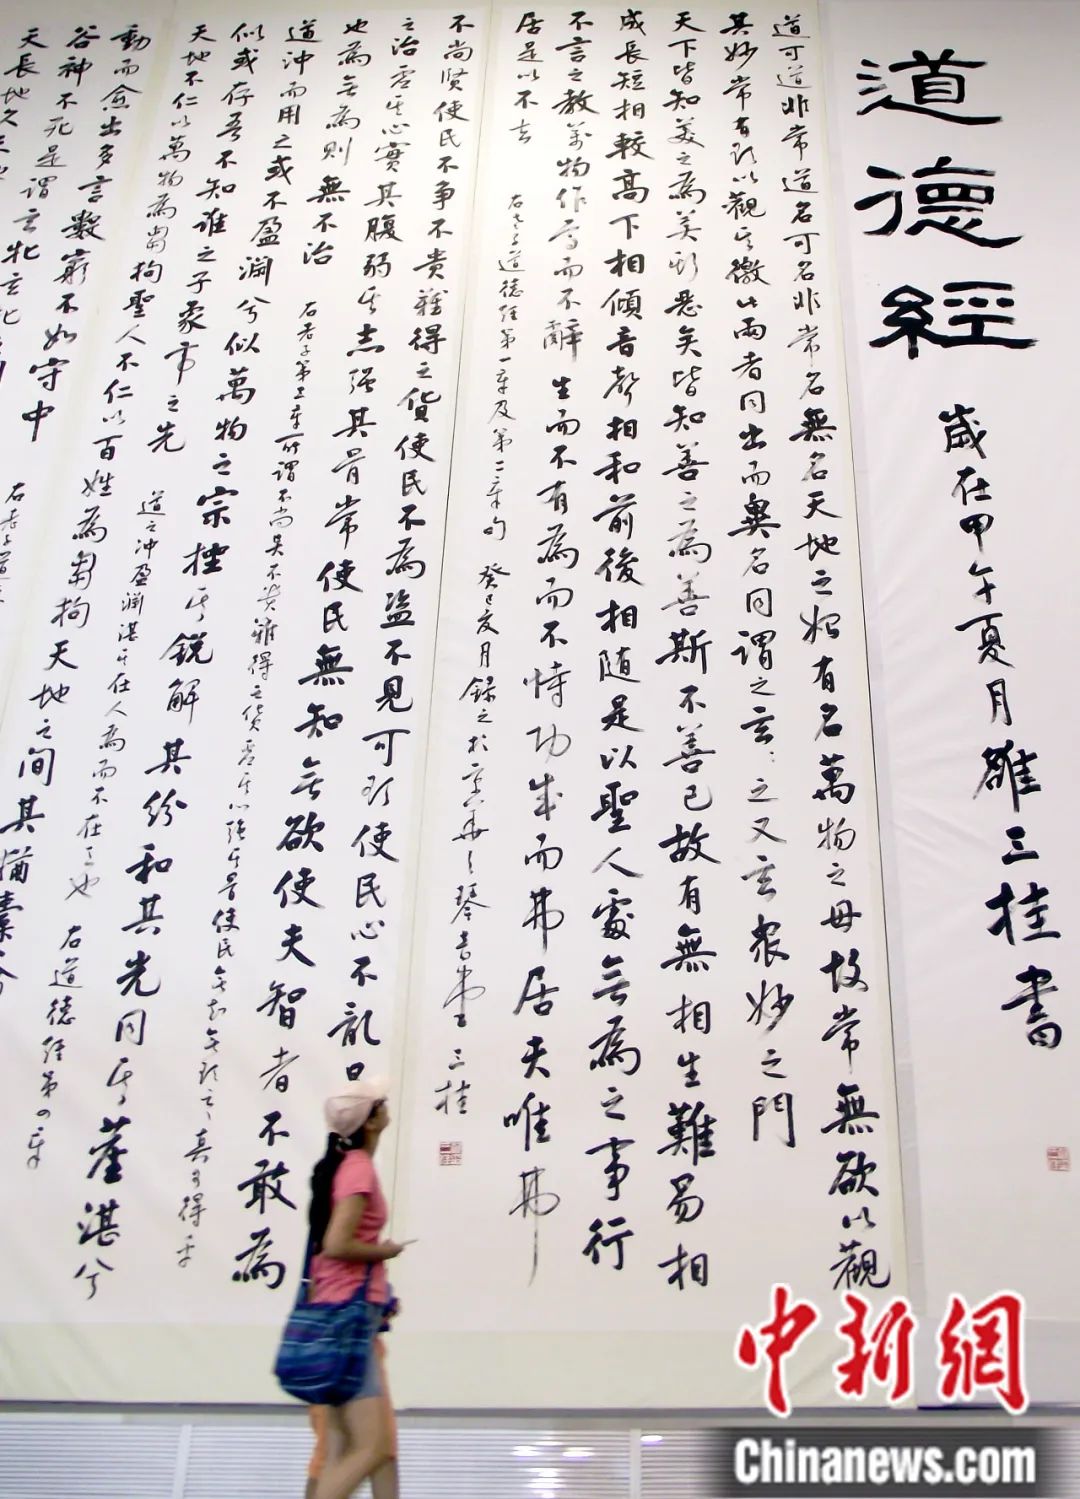 道德經
歲在甲午夏月雒三桂書
道可道非常道名可名非常名無名天地之始有名萬物之母故常無欲以觀
其妙常有欲以觀其徼此兩者同出而異名同謂之玄玄之又玄眾妙之門
天下皆知美之為美斯惡矣皆知善之為善斯不善已故有無相生難易相
成長短相較高下相傾音聲相和前後相隨是以聖人處無為之事行
不言之教萬物作焉而不辭生而不有為而不恃功成而弗居夫唯弗
居是以不去
右老子道德經第一章及第二章句
三桂
不尚賢使民不爭不貴難得之貨使民不為盜不見可欲使民心不亂是
之治虛其心實其腹弱其志强其骨常使民無知無欲使夫智者不敢為
也為無為則無不治
右老子第三章所謂不尚賢不貴難得之貨虛其心强其骨使民無知無欲
道沖而用之或不盈淵兮似萬物之宗挫其銳解其紛和其光同其塵湛兮
似或存吾不知誰之子象帝之先
道之沖盈淵湛其在人為而不在言也
右道德經第四章
天地不仁以萬物為芻狗聖人不仁以百姓為芻狗天地之間其猶橐
動而愈出多言數窮不如守中
谷神不死是謂玄牝玄牝
天長地久
中新網
Chinanews.com